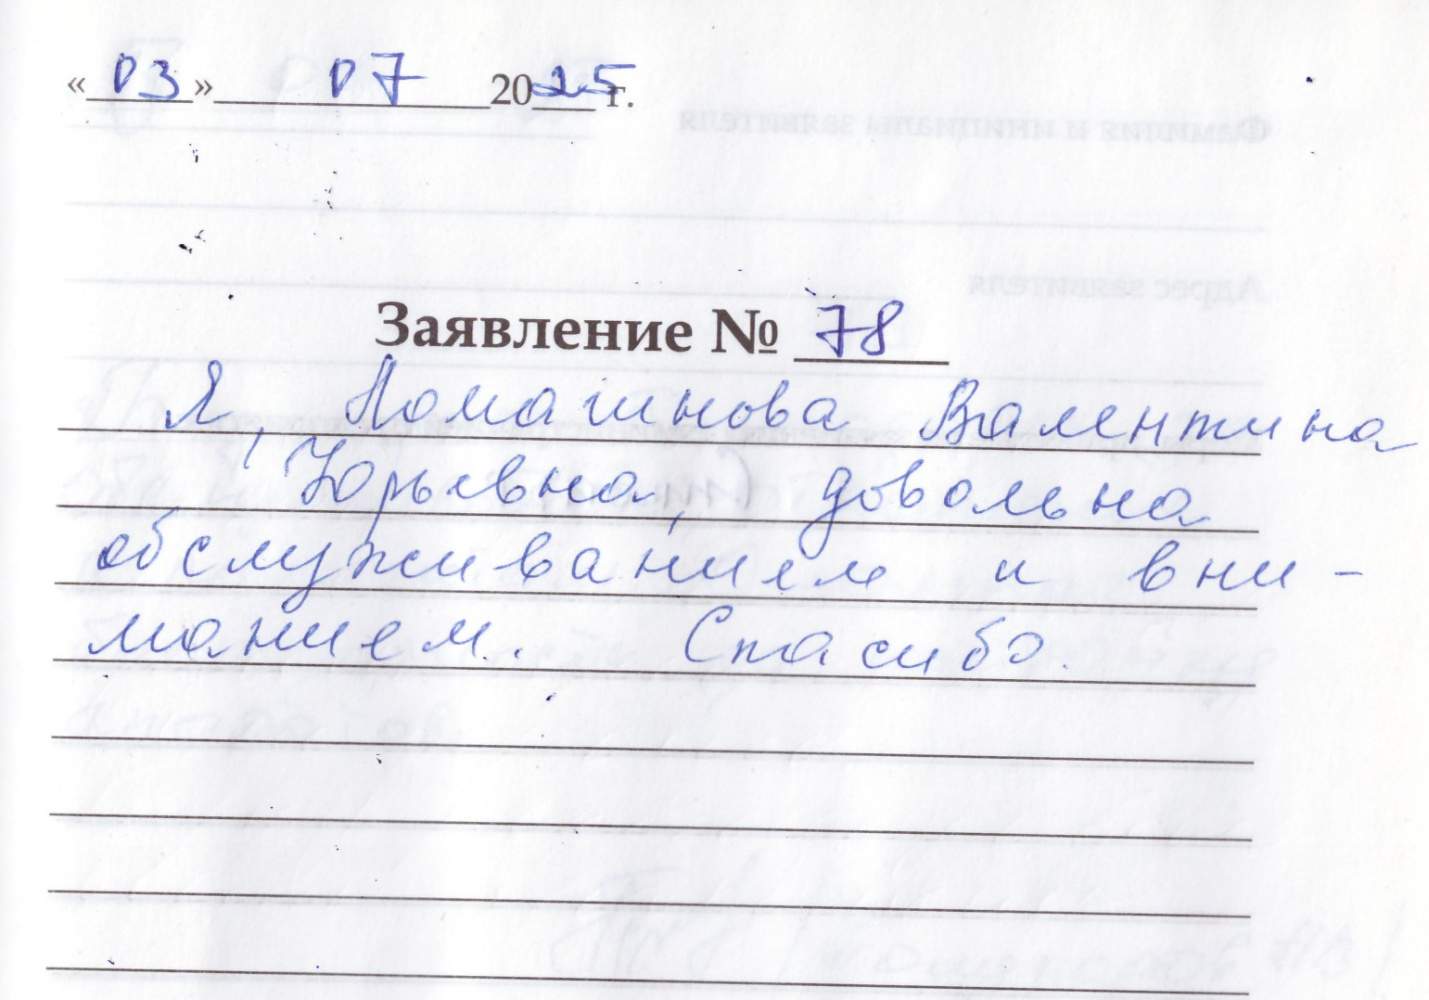 «03» 07 2025 г.
Заявление № 78
Я, Ломашнова Валентина
Юрьевна, довольна
обслуживанием и вни-
манием. Спасибо.